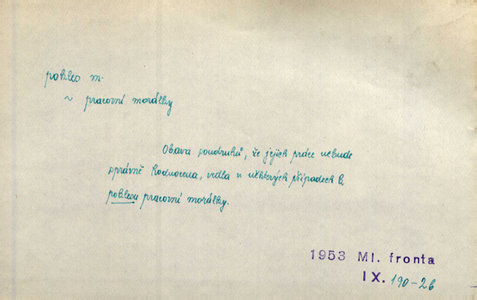 pokles m.
~ pracovní morálky
Obava soudruhů, že jejich práce nebude
správně hodnocena, vedla v některých případech k
poklesu pracovní morálky.
1953 Ml. fronta
IX. 190-26